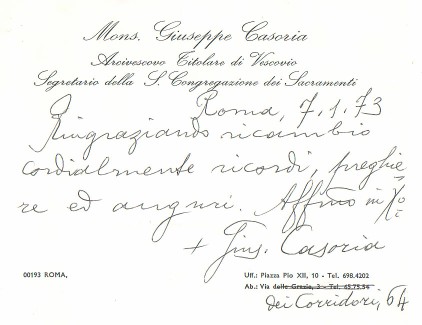 Mons. Giuseppe Casoria
Arcivescovo Titolare di Vescovio
Segretario della S. Congregazione dei Sacramenti
Roma, 7.1.73
Ringraziando ricambio
cordialmente ricordi, preghie=
re ed auguri. Affmo in Xo
+ Gius. Casoria
00193 ROMA,
Uff.: Piazza Pio XII, 10 - Tel. 698.4202
Ab.: Via delle Grazie, 3 - Tel. 65.75.54
dei Corridori, 64